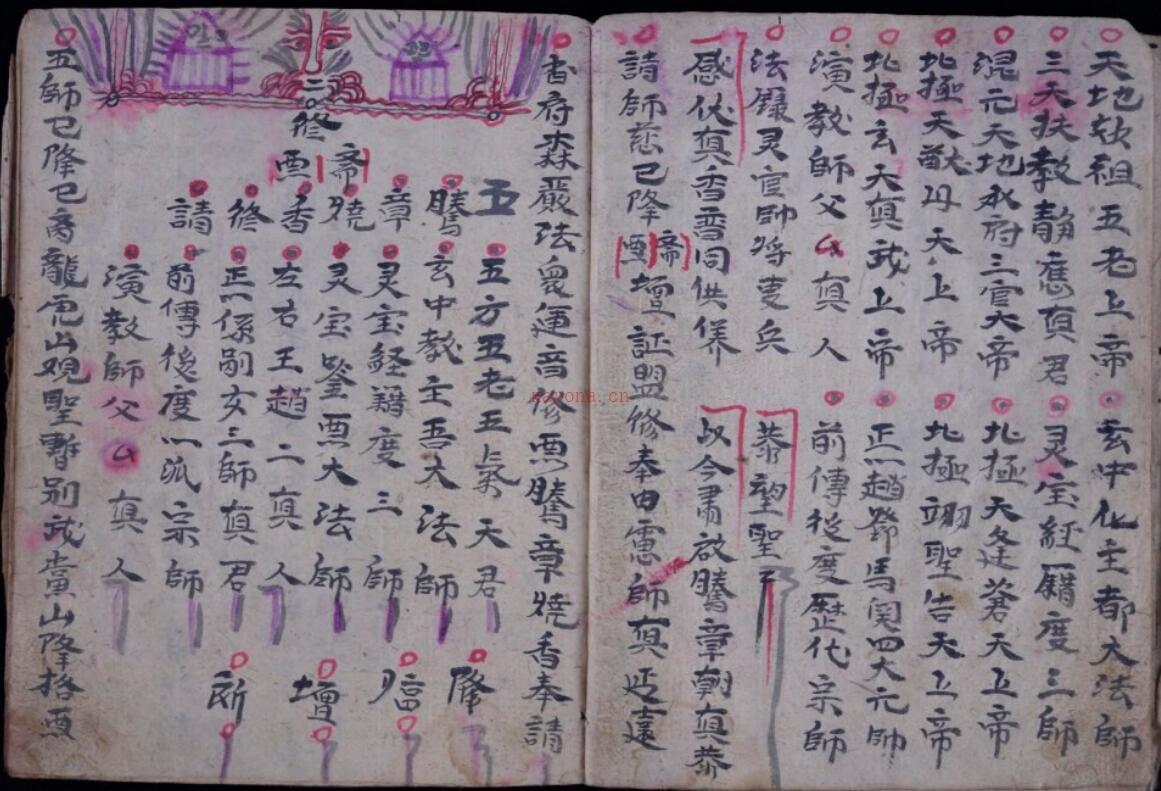 天地欤祖五老上帝 玄中化主都大法師
三天扶教静應真君 灵宝經籍度三師
混元天地水府三官大帝 北極天蓬蒼天上帝
北極天猷丹天上帝 北極翊聖告天上帝
北極玄天真武上帝 正一趙鄧馬関四大元帥
演教師父厶真人 前傳後度歷代宗師
法籙灵官帥将吏兵 恭望聖
感伏真香雲同供養 以今肅啟騰章朝真恭
請師慈已降 斋 壇証盟修奉由慮師真延
香府森嚴法眾運音修 騰章燒香奉請
五 五方五老五炁天君
騰 玄中教主吾大法師
章 灵宝経籍度三師
燒 灵宝鑒 大法師
香 左右王趙二真人
修 正一係嗣女三師真君
請 前傳後度一派宗師
演教師父厶真人
降 臨 壇 所
二修
斋
五師已降已离龍虎山观聖暫别武當山降格
nayona.cn